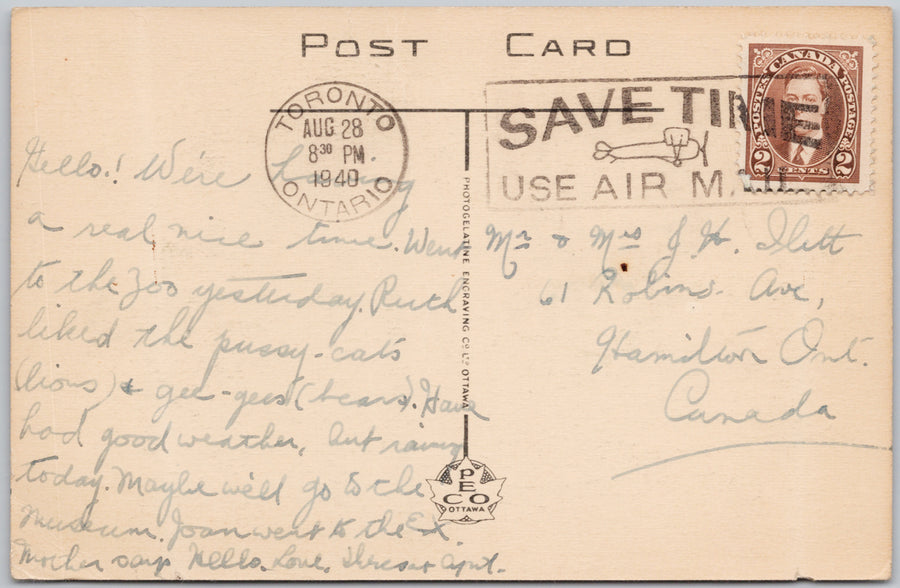 POST CARD
TORONTO
AUG 28
8³⁰ PM
1940
ONTARIO
SAVE TIME
USE AIR MAIL
CANADA
POSTES POSTAGE
2 CENTS 2
Hello! We're having
a real nice time. Went
to the Zoo yesterday. Ruth
liked the pussy-cats
(lions) & gee-gees (bears). Have
had good weather, but rainy
today. Maybe we'll go to the
Museum. Joan went to the Ex.
Mother says Hello. Love,
Mr & Mrs J. H. Ilett
61 Robins Ave,
Hamilton Ont.
Canada
PHOTOGELATINE ENGRAVING CO. LTD. OTTAWA
PECO
OTTAWA